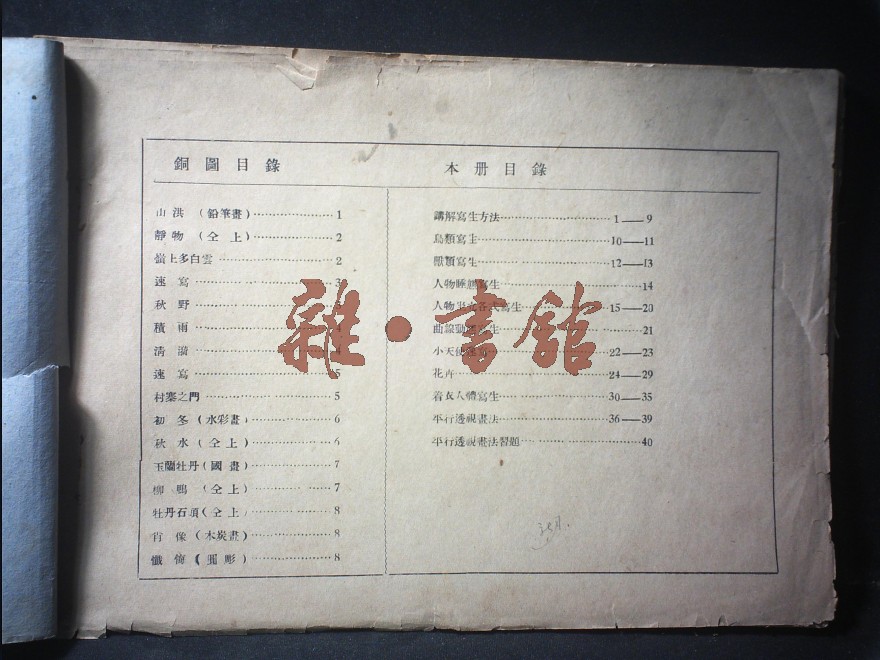 銅圖目錄
山洪（鉛筆畫）…………………1
靜物（仝上）…………………2
嶺上多白雲…………………2
速寫…………………3
秋野…………………
積雨…………………4
清漪…………………4
速寫…………………5
村寨之門…………………5
初冬（水彩畫）…………………6
秋水（仝上）…………………6
玉蘭牡丹（國畫）…………………7
柳鴨（仝上）…………………7
牡丹石頭（仝上）…………………8
肖像（木炭畫）…………………8
懺悔（圓彫）…………………8
本册目錄
講解寫生方法…………………1——9
鳥類寫生…………………10——11
獸類寫生…………………12——13
人物睡態寫生…………………14
人物 各式寫生…………………15——20
曲線 寫生…………………21
小天使 …………………22——23
花卉…………………24——29
着衣人體寫生…………………30——35
平行透視畫法…………………36——39
平行透視畫法習題…………………40
雜·書館